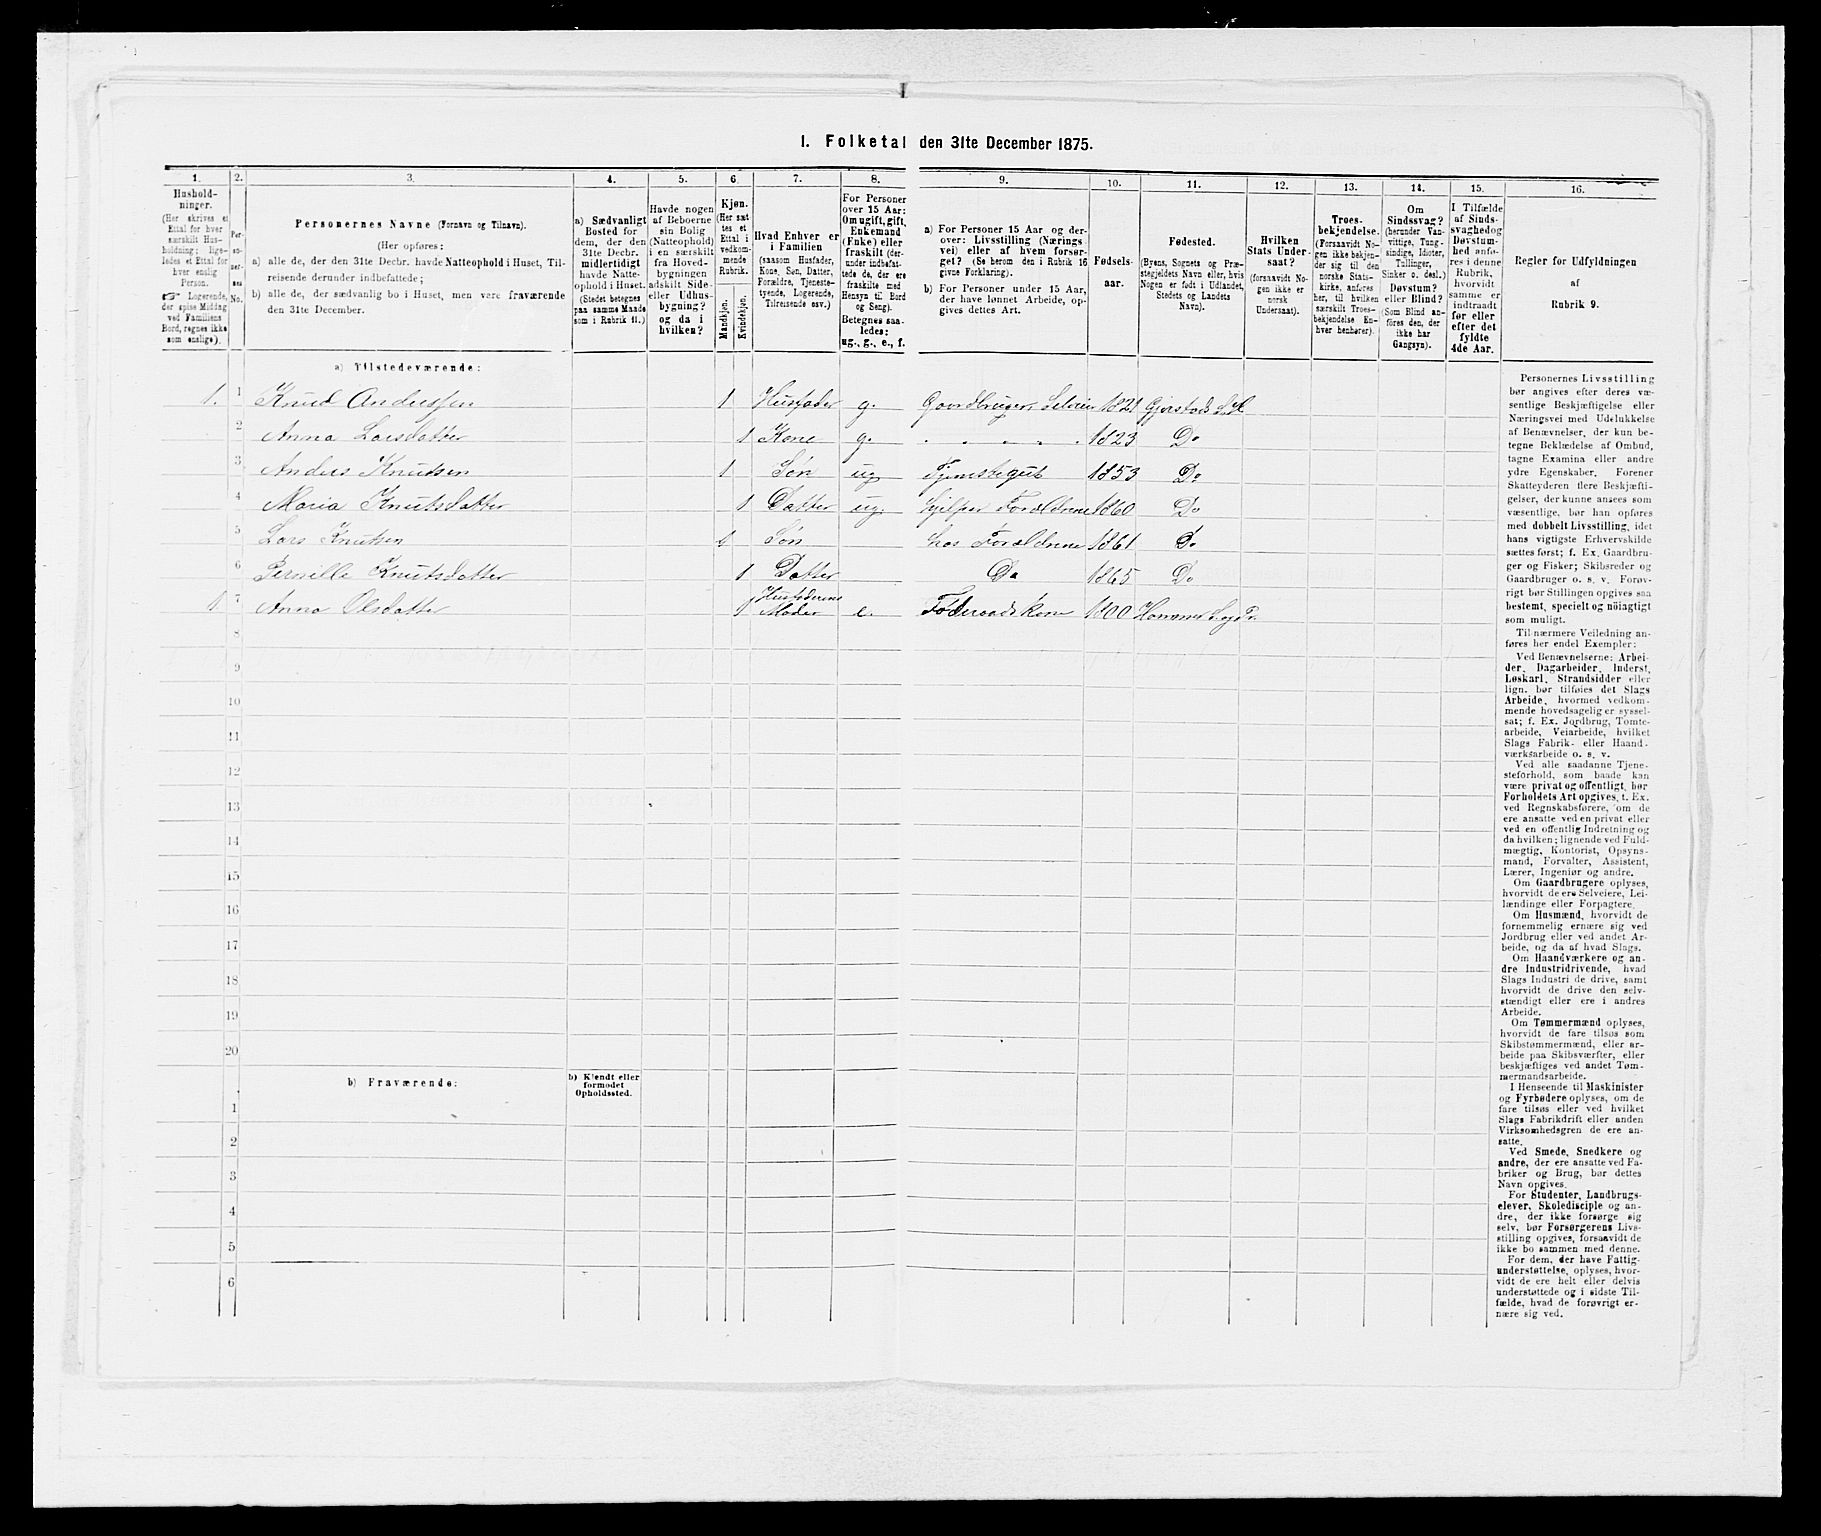 I. Folketal den 31te December 1875.
1. 2. 3. 4. 5. 6. 7. 8. 9. 10. 11. 12. 13. 14. 15. 16.
Hushold-
ninger.
(Her skrives et
Ettal for hver
særskilt Hus-
holdning; lige-
ledes et Ettal for
hver enslig
Person.
☞ Logerende,
der spise Middag
ved Familiens
Bord, regnes ikke
som enslige).
Per-
so-
ner-
nes
No.
Personernes Navne (Fornavn og Tilnavn).
(Her opføres:
a) alle de, der den 31te Decbr. havde Natteophold i Huset, Til-
reisende derunder indbefattede;
b) alle de, der sædvanlig bo i Huset, men vare fraværende
den 31te December.
a) Sædvanligt
Bosted for
dem, der den
31te Decbr.
midlertidigt
havde Natte-
ophold i Huset.
(Stedet betegnes
paa samme Maade
som i Rubrik 11.)
Havde nogen
af Beboerne
sin Bolig
(Natteophold)
i en særskilt
fra Hoved-
bygningen
adskilt Side-
eller Udhus-
bygning?
og da i
hvilken?
Kjøn.
(Her sæt
tes et
Ettal i
vedkom-
mende
Rubrik.
Mandkjøn.
Kvindekjøn.
Hvad Enhver er
i Familien
(saasom Husfader,
Kone, Søn, Datter,
Forældre, Tjeneste-
tyende, Logerende,
Tilreisende osv.)
For Personer
over 15 Aar:
Om ugift, gift,
Enkemand
(Enke) eller
fraskilt (der-
under indbefat-
tede de, der ere
fraskilte med
Hensyn til Bord
og Seng).
Betegnes saa-
ledes:
ug., g., e., f.
a) For Personer 15 Aar og der-
over: Livsstilling (Nærings
vei) eller af hvem forsør-
get? (Se herom den i Rubrik 16
givne Forklaring).
b) For Personer under 15 Aar,
der have lønnet Arbeide, op-
gives dettes Art.
Fødsels-
aar.
Fødested.
(Byens, Sognets og Præ-
stegjeldets Navn eller, hvis
Nogen er født i Udlandet,
Stedets og Landets
Navn).
Hvilken
Stats Under-
saat?
(forsaavidt No-
gen ikke er
norsk
Undersaat).
Troes-
bekjendelse.
(Forsaavidt No-
gen ikke bekjen-
der sig til den
norske Stats-
kirke, anføres
her, til hvilken
særskilt Troes-
bekjendelse En-
hver henhører).
Om
Sindssvag?
(herunder Van-
vittige, Tung-
sindige, Idioter,
Tullinger,
Sinker o. desl.)
Døvstum?
eller Blind?
(Som Blind an-
føres den, der
ikke har
Gangsyn).
I Tilfælde
af Sinds-
svaghed og
Døvstum-
hed anfø-
res i denne
Rubrik,
hvorvidt
samme er
indtraadt
før eller
efter det
fyldte
4de Aar.
Regler for Udfyldningen
af
Rubrik 9.
a) Tilstedeværende:
1. 1 Knud Anderssen 1 Husfader g. Gaardbruger, Selveier 1821 Gjerstads
2 Anna Larsdatter 1 Kone g. " " " " " 1823 Do
3 Anders Knutsen 1 Søn ug. Tjenstegut 1853 Do
4 Maria Knutsdatter 1 Datter ug. hjelper Forældrene 1860 Do
5 Lars Knutsen 1 Søn hos Forældrene 1861 Do
6 Pernille Knutsdatter 1 Datter Do 1865 Do
1 7 Anna Olsdatter 1 Husfaderens Moder e. Føderaadskone 1800
8
9
10
11
12
13
14
15
16
17
18
19
20
b) Fraværende:
b) Kjendt eller
formodet
Opholdssted.
1
2
3
4
5
6
Personernes Livsstilling
bør angives efter deres væ-
sentlige Beskjæftigelse eller
Næringsvei med Udelukkelse
af Benævnelser, der kun be-
tegne Beklædelse af Ombud,
tagne Examina eller andre
ydre Egenskaber. Forener
Skatteyderen flere Beskjæfti-
gelser, der kunne ansees som
væsentlige, bør han opføres
med dobbelt Livsstilling, idet
hans vigtigste Erhvervskilde
sættes først; f. Ex. Gaardbru-
ger og Fisker; Skibsreder og
Gaardbruger o. s. v. Forøv-
rigt bør Stillingen opgives saa
bestemt, specielt og nöiagtigt
som muligt.
Til nærmere Veiledning an-
føres her endel Exempler:
Ved Benævnelserne: Arbei-
der, Dagarbeider, Inderst,
Løskarl, Strandsidder eller
lign. bør tilføies det Slags
Arbeide, hvormed vedkom-
mende hovedsagelig er syssel-
sat; f. Ex. Jordbrug, Tomte-
arbeide, Veiarbeide, hvilket
Slags Fabrik- eller Haand-
værksarbeide o. s. v.
Ved alle saadanne Tjene-
steforhold, som baade kan
være privat og offentligt, bør
Forholdets Art opgives, t. Ex.
ved Regnskabsførere, om de
ere ansatte ved en privat eller
ved en offentlig Indretning og
da hvilken; lignende ved Fuld-
mægtig, Kontorist, Opsyns-
mand, Forvalter, Assistent,
Lærer, Ingeniør og andre.
Om Gaardbrugere oplyses,
hvorvidt de ere Selveiere, Lei-
lændinge eller Forpagtere.
Om Husmænd, hvorvidt de
fornemmelig ernære sig ved
Jordbrug eller ved andet Ar-
beide, og da af hvad Slags.
Om Haandværkere og an-
dre Industridrivende, hvad
Slags Industri de drive, samt
hvorvidt de drive den selv-
stændigt eller ere i andres
Arbeide.
Om Tømmermænd oplyses,
hvorvidt de fare tilsøs som
Skibstømmermænd, eller ar-
beide paa Skibsværfter, eller
beskjæftiges ved andet Tøm-
mermandsarbeide.
I Henseende til Maskinister
og Fyrbødere oplyses, om de
fare tilsøs eller ved hvilket
Slags Fabrikdrift eller anden
Virksomhedsgren de ere an-
satte.
Ved Smede, Snedkere og
andre, der ere ansatte ved Fa-
briker og Brug, bør dettes
Navn opgives.
For Studenter, Landbrugs-
elever, Skoledisciple og an-
dre, der ikke forsørge sig
selv, bør Forsørgerens Livs-
stilling opgives, forsaavidt de
ikke bo sammen med denne.
For dem, der have Fattig-
understøttelse, oplyses, hvor-
vidt de ere helt eller delvis
understøttede og i sidste Til-
fælde, hvad de forøvrigt er-
nære sig ved.